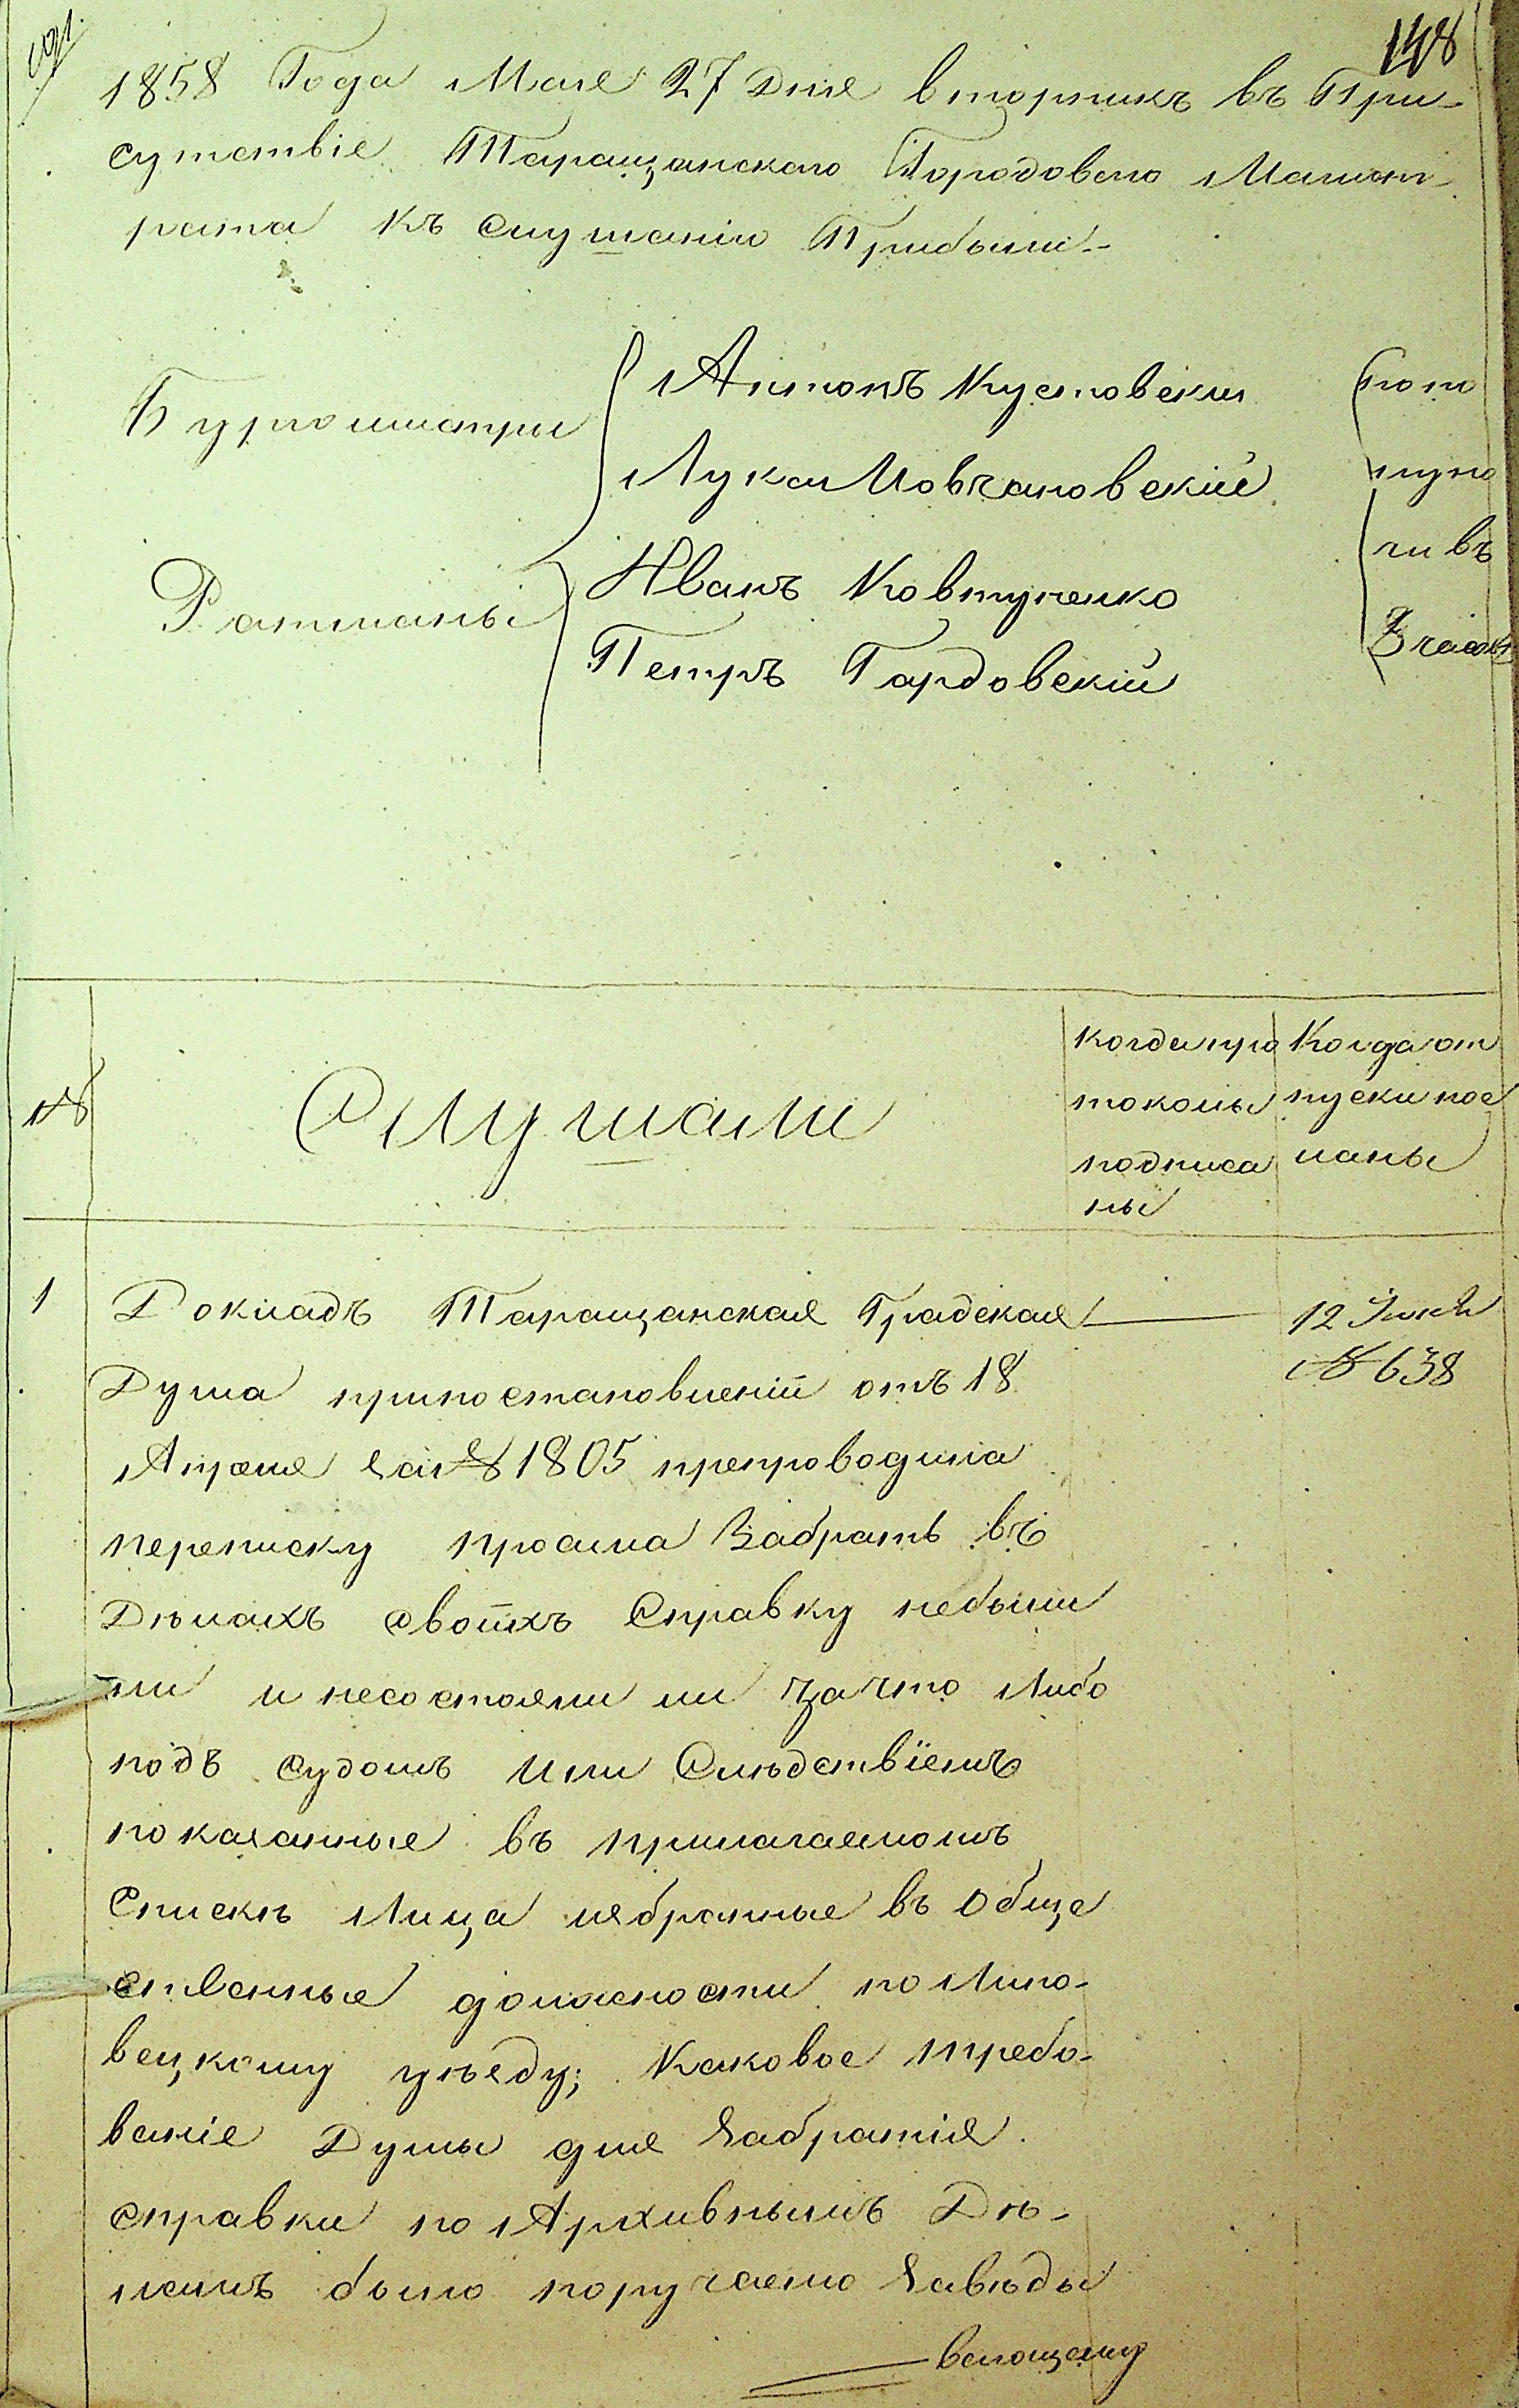 148
1858 Года Мая 27 Дня вторникъ въ При-
сутствіе Таращанского Городового Магист-
рата къ слушанію Прибыли
Бургомистры
Антонъ Кустовскій
Лука Мовчановскій
Ратманы
Иванъ Ковтуненко
Петръ Гардовскій
попо
луно
чи въ
часов
№
Слушали
когда про
токолы
подписа
ны
Когда от
пуски пос
ланы
1
Докладъ Таращанская Градская
12 Іюня
№ 638
Дума при постановленій отъ 18
Апреля за № 1805 препроводила
переписку просила Забрать въ
Дѣлахъ своихъ Справку небыли
ли и несостояли ли за что Либо
подъ судомъ или Слѣдствіемъ
показанные въ прилагаемомъ
Спискѣ Лица избранные въ Обще
ственные должности по Липо-
вецкому уѣзду; Каковое требо-
ваніе Думы для забратія
справки по Архивнымъ Дѣ-
ламъ было поручаемо Завѣды
вающему